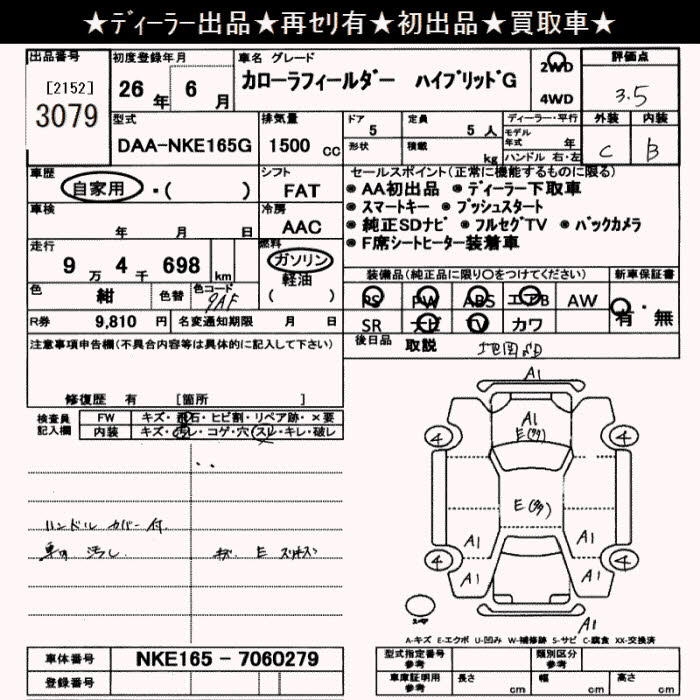 ★ディーラー出品★再セリ有★初出品★買取車★
出品番号
[2152]
3079
初度登録年月
26年 6月
車名 グレード
カローラフィールダー ハイブリッドG
2WD
4WD
評価点
3.5
型式
DAA-NKE165G
排気量
1500 cc
ドア
5
定員
5人
形状
積載
kg
ディーラー・平行
モデル年式 年
ハンドル 右・左
外装
C
内装
B
車歴
自家用・( )
シフト
FAT
車検
年 月 日
冷房
AAC
セールスポイント(正常に機能するものに限る)
◉AA初出品 ◉ディーラー下取車
◉スマートキー ◉プッシュスタート
◉純正SDナビ ◉フルセグTV ◉バックカメラ
◉F席シートヒーター装着車
走行
9万4千698 km
燃料
ガソリン
軽油
( )
色
紺
色替
色コード
9AF
装備品(純品品に限り○をつけてください)
新車保証書
PS PW ABS エアB AW
SR ナビ TV カワ
有・無
R券 9,810 円
名変通知期限 月 日
後日品 取説 地図SD
注意事項申告欄(不具合内容等は具体的に記入して下さい)
修復歴 有 [箇所 ]
検査員記入欄
FW キズ・飛石・ヒビ割・リペア跡・×要
内装 キズ・汚レ・コゲ・穴・スレ・キレ・破レ
ハンドル カバー付
汚し
A1
A1
E(多)
E(多)
4
4
4
4
A1
A1
A1
A1
A1
A-キズ E-エクボ U-凹み W-補修跡 S-サビ C-腐食 XX-交換済
車体番号 NKE165-7060279
登録番号
型式指定番号参考
類別区分参考
車庫証明用参考
長さ cm
幅 cm
高さ cm